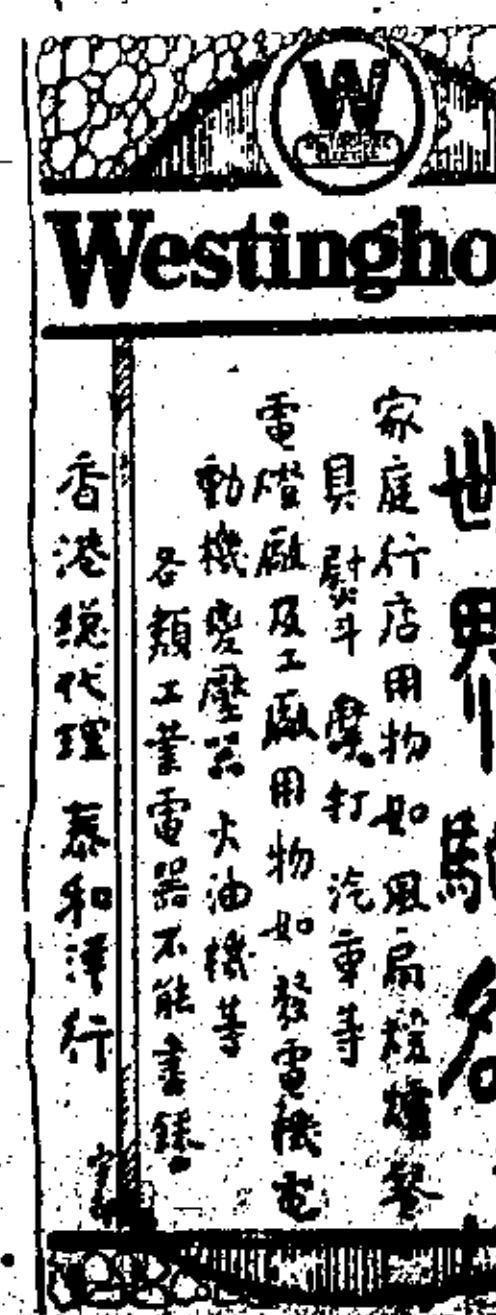 W
Westingho
世界馳名
家庭行店用物如風扇燈爐
具熨斗 摩打 汽車等
電燈廠及工廠用物如發電機電
動機變壓器火油機等
各類工業電器不能盡錄
香港總代理 泰和洋行